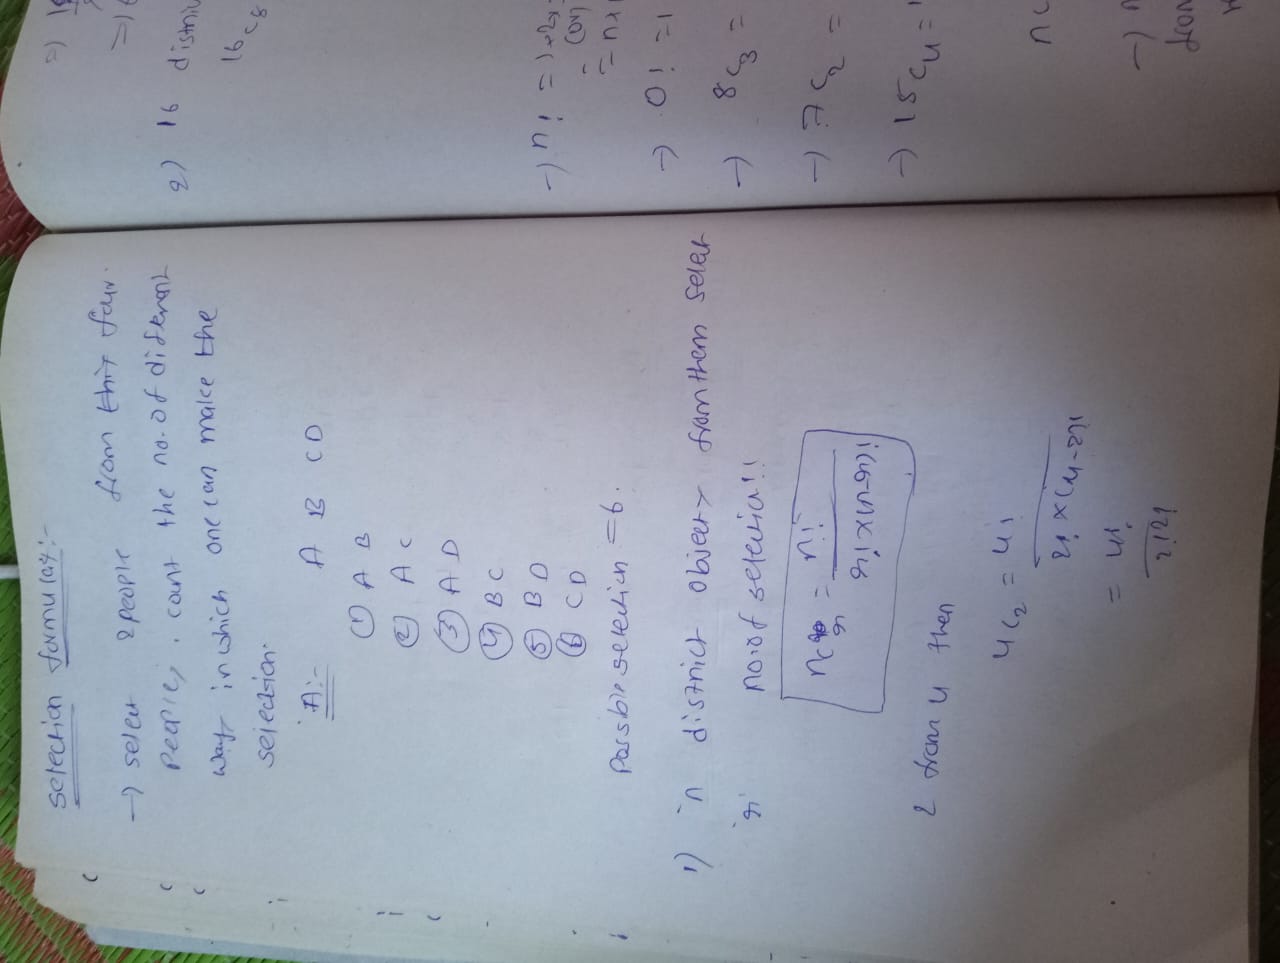 selection formulas:-
→ select 2 people from this four
people, count the no. of different
ways in which one can make the
selection.
A:- A B C D
① A B
② A C
③ A D
④ B C
⑤ B D
⑥ C D
Possible selection = 6.
1) 'n' district objects from them select
'r' no. of selection!!
ncr = n! / r! x (n-r)!
2 from 4 then
4c2 = 4! / 2! x (4-2)!
= 4! / 2! 2!
2) 16
16c8
→ n! =
(or)
→ 0! = 1
→ 8c3 =
→ 7c2 =
→ 15c4 =
nc